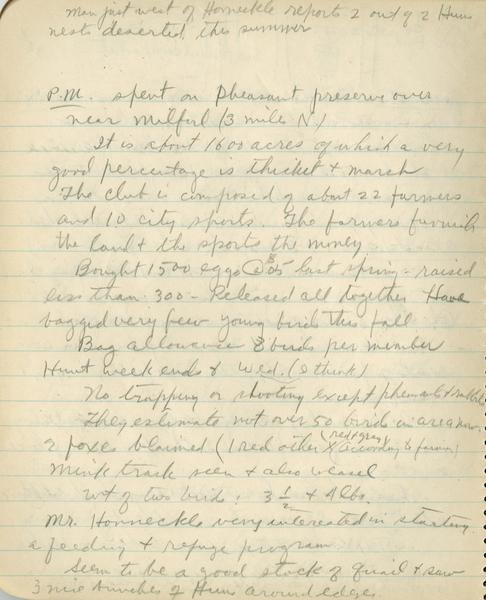 Man just west of Horneckle reports 2 out of 2 Huns
nests deserted this summer
P.M. spent on Pheasant preserve over
near Milford (3 miles N.)
It is about 1600 acres of which a very
good percentage is thicket & marsh
The club is composed of about 22 farmers
and 10 city sports. The farmers furnish
the land & the sports the money
Bought 1500 eggs @ last spring - raised
less than 300 - Released all together Have
bagged very few young birds this fall
Bag allowance 8 birds per member
Hunt week ends & Wed. (I think)
No trapping or shooting except pheasants & rabbits
They estimate not over 50 birds in area now.
2 foxes blamed (1 red other (red & gray) according to farmer)
Mink track seen & also weasel
Wt of two birds: 3 1/2 & 4 lbs.
Mr. Horneckle very interested in starting
a feeding & refuge program
Seem to be a good stock of quail & saw
3 nice bunches of Huns around edges.